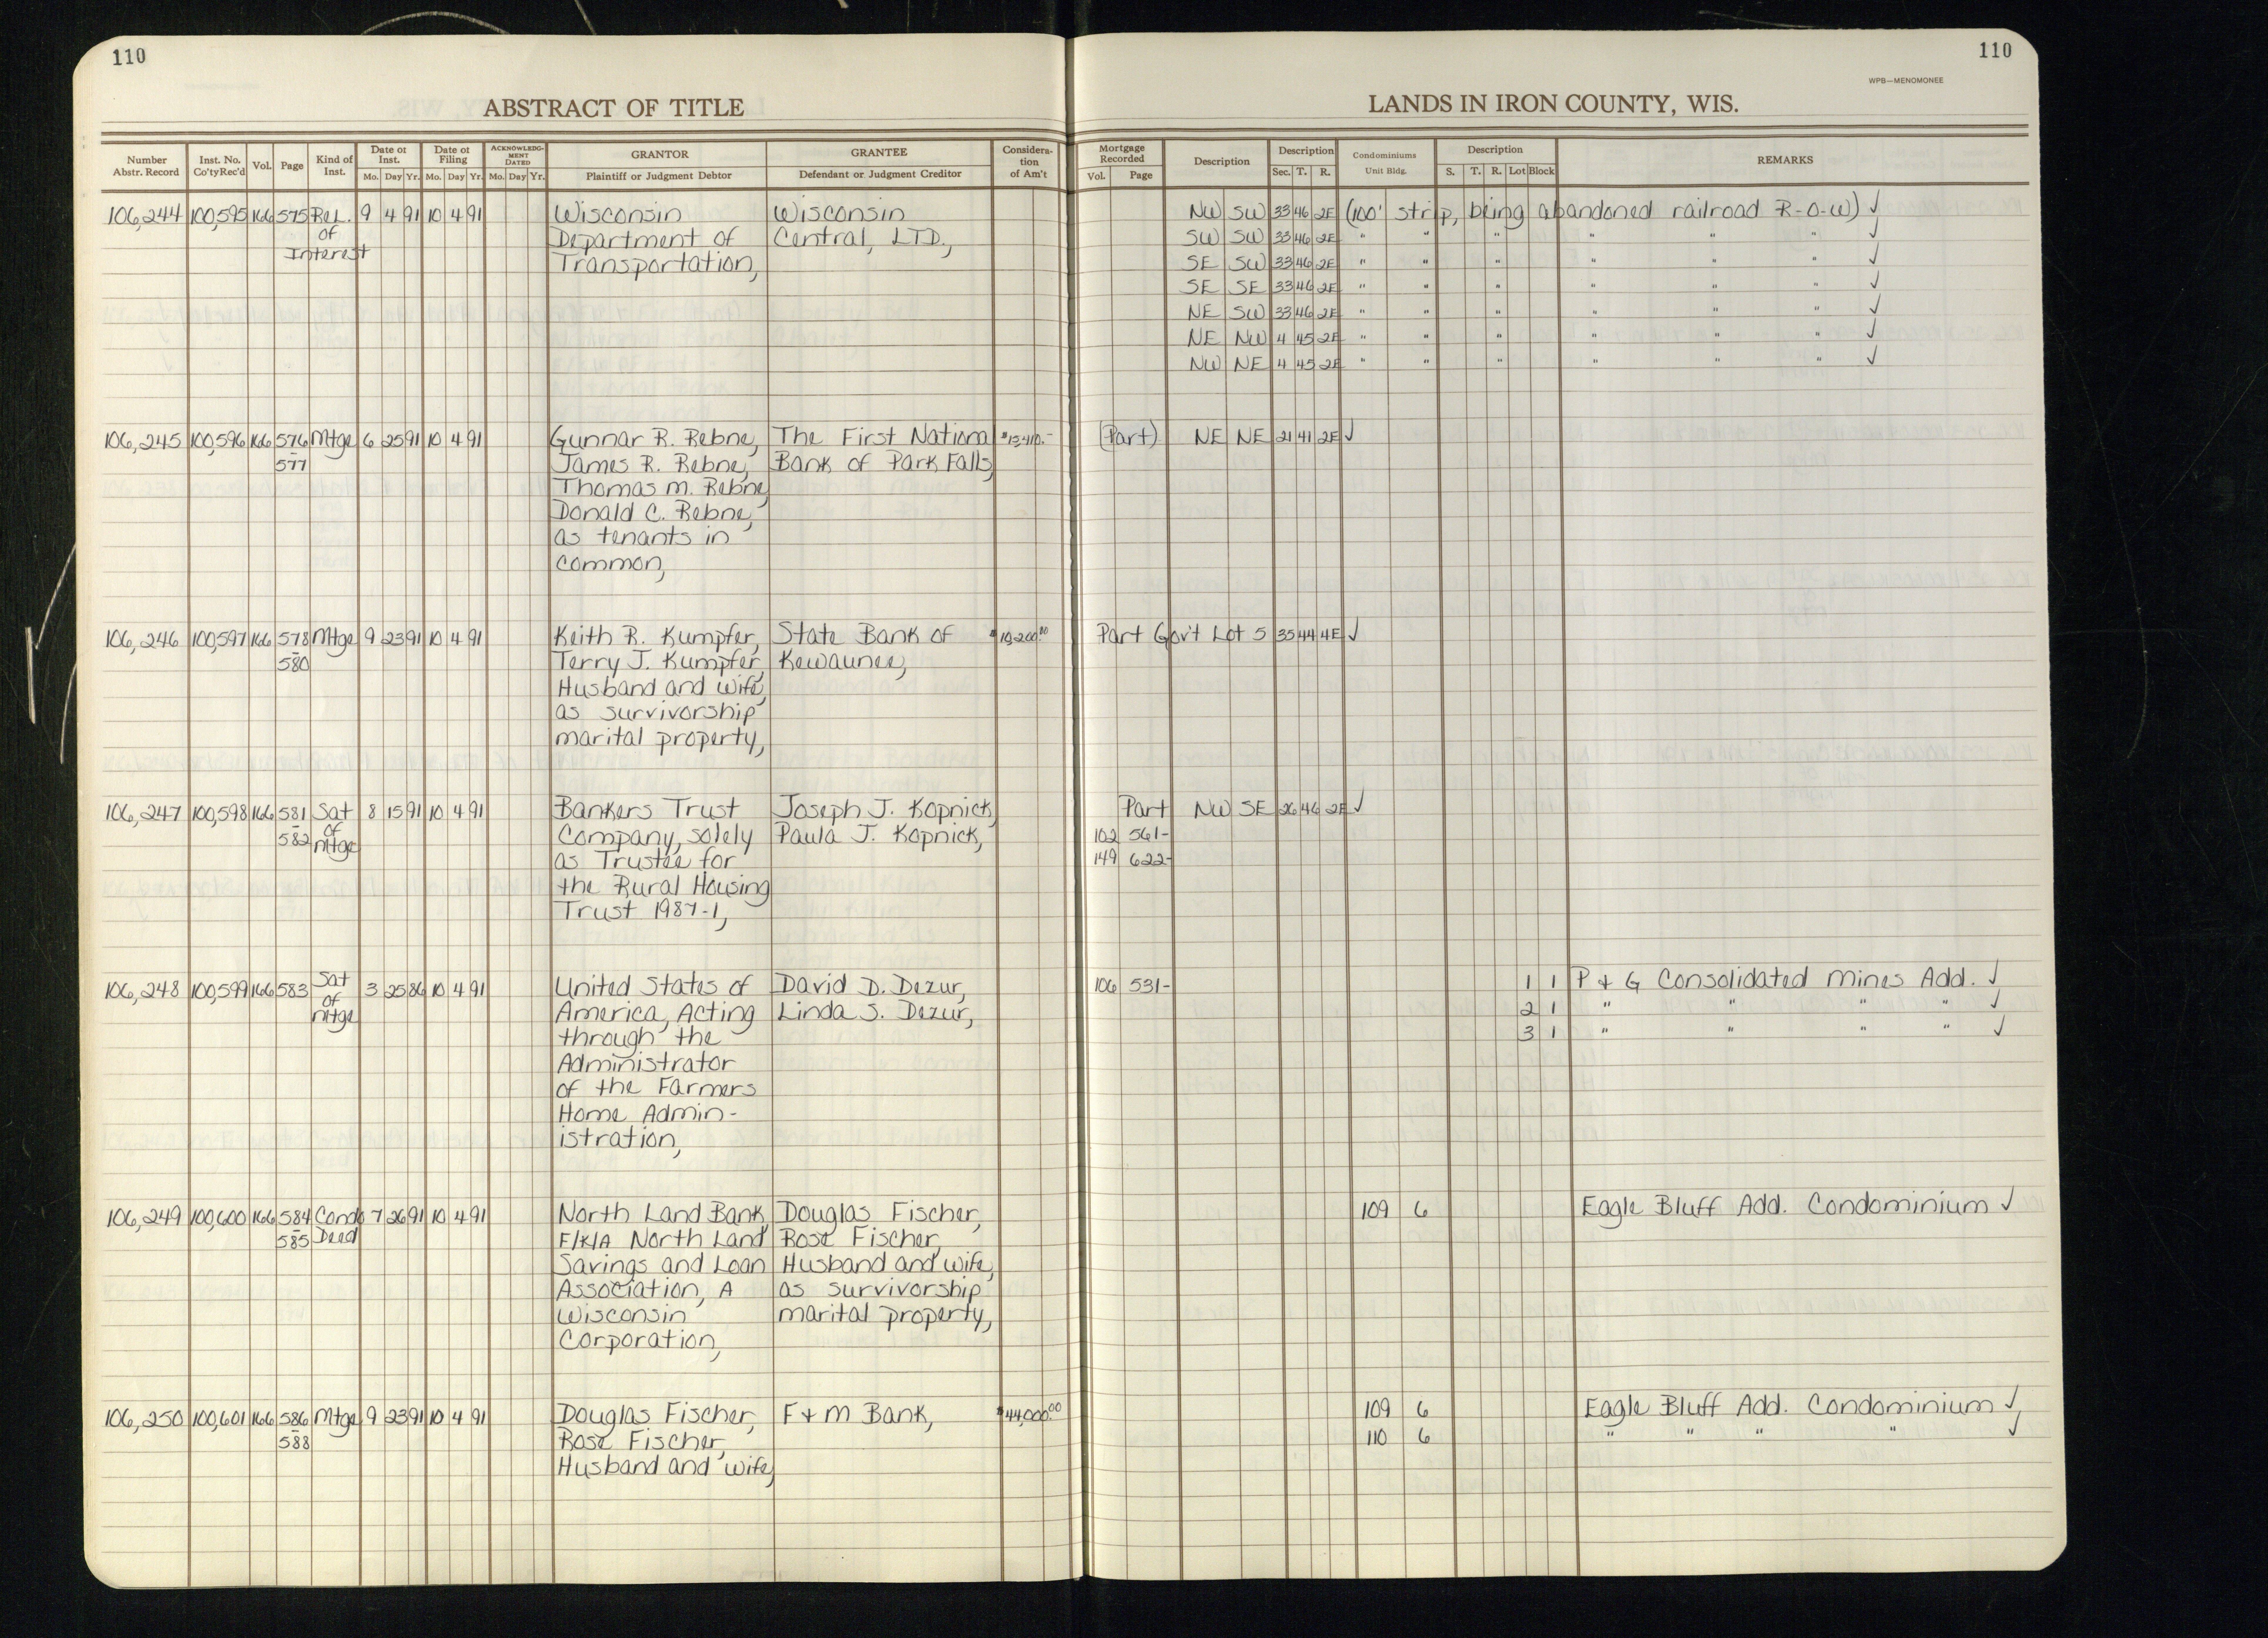 110
110
WPB—MENOMONEE
ABSTRACT OF TITLE
LANDS IN IRON COUNTY, WIS.
Number Abstr. Record Inst. No. Co'ty Rec'd Vol. Page Kind of Inst. Date of Inst. Mo. Day Yr. Date of Filing Mo. Day Yr. ACKNOWLEDGMENT DATED Mo. Day Yr. GRANTOR Plaintiff or Judgment Debtor GRANTEE Defendant or Judgment Creditor Consideration of Am't Mortgage Recorded Vol. Page Description Description Sec. T. R. Condominiums Unit Bldg. Description S. T. R. Lot Block REMARKS
106,244 100,595 166 575 Rel. 9 4 91 10 4 91 Wisconsin Wisconsin NW SW 33 46 2E (100' strip, being abandoned railroad R-O-W) ✓
of Department of Central, LTD., SW SW 33 46 2E " " " " " " ✓
Interest Transportation, SE SW 33 46 2E " " " " " " ✓
SE SE 33 46 2E " " " " " " ✓
NE SW 33 46 2E " " " " " " ✓
NE NW 4 45 2E " " " " " " ✓
NW NE 4 45 2E " " " " " " ✓
106,245 100,596 166 576 Mtge 6 25 91 10 4 91 Gunnar R. Rebne, The First National (Part) NE NE 21 41 2E ✓
- 577 James R. Rebne, Bank of Park Falls,
Thomas M. Rebne,
Donald C. Rebne,
as tenants in
common,
106,246 100,597 166 578 Mtge 9 23 91 10 4 91 Keith R. Kumpfer, State Bank of Part Gov't Lot 5 35 44 4E ✓
- 580 Terry J. Kumpfer, Kewaunee,
Husband and wife,
as survivorship
marital property,
106,247 100,598 166 581 Sat 8 15 91 10 4 91 Bankers Trust Joseph J. Kopnick, Part NW SE 26 46 2E ✓
- 582 of Company, solely Paula J. Kopnick, 102 561-
Mtge as Trustee for 149 622-
the Rural Housing
Trust 1987-1,
106,248 100,599 166 583 Sat 3 25 86 10 4 91 United States of David D. Dezur, 106 531- 1 1 P & G Consolidated Mines Add. ✓
of America, Acting Linda S. Dezur, 2 1 " " " " ✓
Mtge through the 3 1 " " " " ✓
Administrator
of the Farmers
Home Admin-
istration,
106,249 100,600 166 584 Condo 7 26 91 10 4 91 North Land Bank, Douglas Fischer, 109 6 Eagle Bluff Add. Condominium ✓
- 585 Deed F/K/A North Land Rose Fischer,
Savings and Loan Husband and wife,
Association, A as survivorship
Wisconsin marital property,
Corporation,
106,250 100,601 166 586 Mtge 9 23 91 10 4 91 Douglas Fischer, F & M Bank, $44,000.00 109 6 Eagle Bluff Add. Condominium ✓
- 588 Rose Fischer, 110 6 " " " " ✓
Husband and wife,